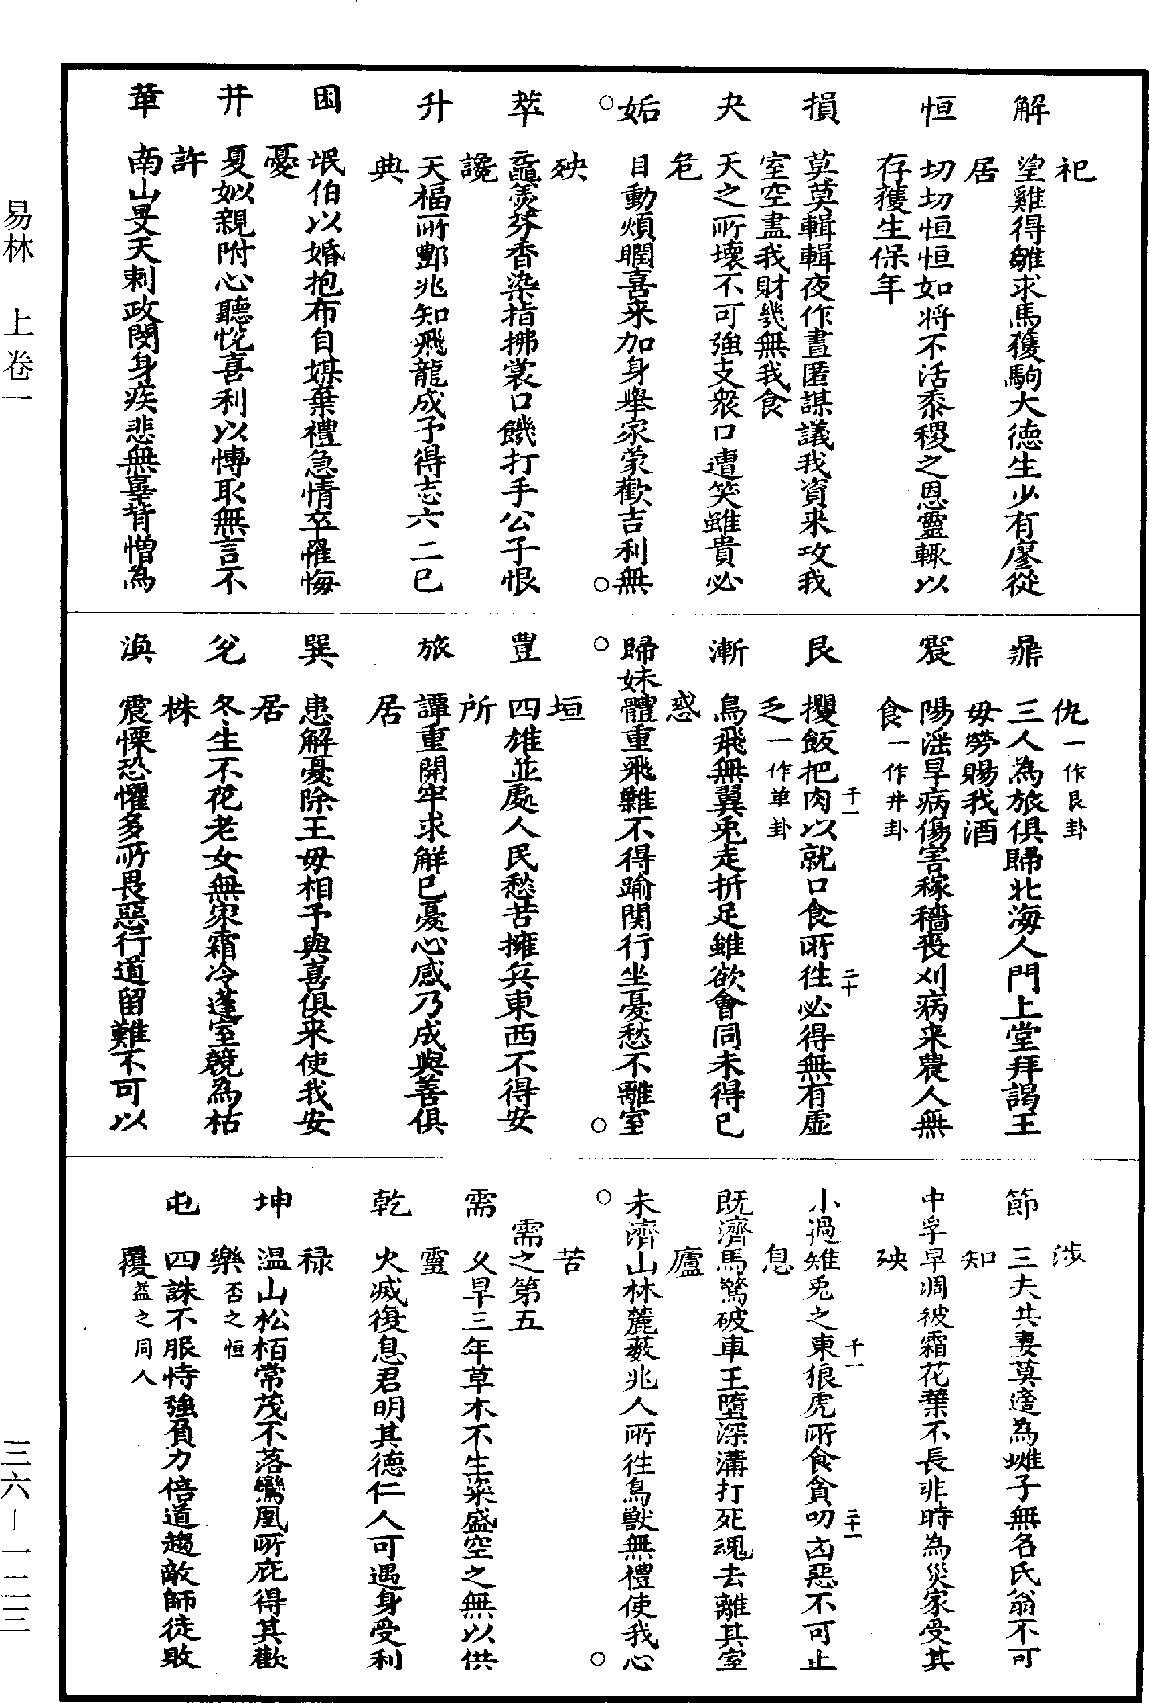 祀
解　望雞得雛求馬獲駒大德生少有廖從
居
恒　切切恒恒如將不活黍稷之恩靈輒以
存獲生保年
損　莫莫輯輯夜作晝匿謀議我資来攻我
室空盡我財幾無我食
夬　天之所壞不可強支衆口遭笑雖貴必
危
○姤　目動頰瞤喜来加身舉家蒙歡吉利無○
殃
萃　黿羹芬香染指拂裳口饑打手公子恨
讒
升　天福所酆兆知飛龍成予得志六二已
典
困　氓伯以婚抱布自媒棄禮急情卒罹悔
憂
井　夏姒親附心聽恱喜利以愽取無言不
許
革　南山旻天刺政閔身疾悲無辜背憎為
仇一作艮卦
鼎　三人為旅俱歸北海人門上堂拜謁王
毋勞賜我酒
震　陽淫旱病傷害稼穡喪刈病来農人無
食一作井卦
艮　攖飯把肉以就口食所徃必得無有虛
千一　二十
乏一作革卦
漸　鳥飛無翼兎走折足雖欲會同未得已
惑
○歸妹體重飛難不得踰関行坐憂愁不離室○
垣
豊　四雄並處人民愁苦擁兵東西不得安
所
旅　譚重開牢求觧已憂心感乃成與善俱
居
巽　患解憂除王毋相予與喜俱来使我安
居
兊　冬生不花老女無家霜冷蓬室競為枯
株
渙　震慄恐懼多所畏惡行道留難不可以
涉
節　三夫共妻莫適為雌子無名氏翁不可
知
中孚早凋彼霜花葉不長非時為災家受其
殃
小過雉兎之東狼虎所食貪叨凶惡不可止
千一　二十一
息
既濟馬驚破車王墮深溝打死魂去離其室
廬
○未濟山林麓藪兆人所徃鳥獸無禮使我心○
苦
需之第五
需　乆旱三年草木不生粢盛空乏無以供
靈
乾　火滅復息君明其德仁人可遇身受利
禄
坤　温山松栢常茂不落鸞凰所庇得其歡
樂否之恒
屯　四誅不服恃強負力倍道趨敵師徒敗
覆益之同人
易林　上卷一
三六—一二三